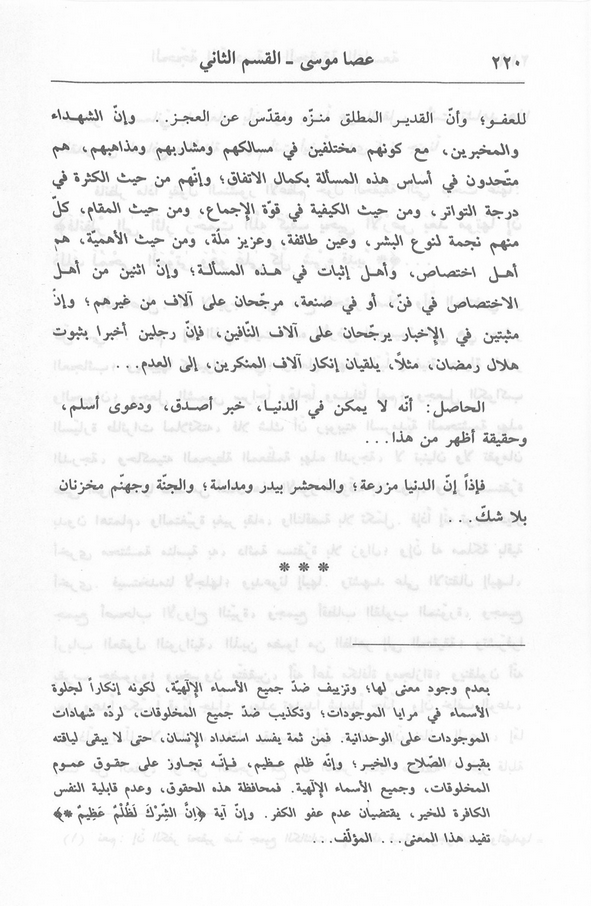 ٢٢٠ عصا موسى ـ القسم الثاني
للعفو؛ وأنّ القدير المطلق منزّه ومقدّس عن العجز.. وإنّ الشهداء
والمخبرين، مع كونهم مختلفين في مسالكهم ومشاربهم ومذاهبهم، هم
متّحدون في أساس هذه المسألة بكمال الاتفاق؛ وإنّهم من حيث الكثرة في
درجة التواتر، ومن حيث الكيفية في قوّة الإجماع، ومن حيث المقام، كلّ
منهم نجمة لنوع البشر، وعين طائفة، وعزيز ملّة، ومن حيث الأهميّة، هم
أهل اختصاص، وأهل إثبات في هذه المسألة؛ وإنّ اثنين من أهل
الاختصاص في فنّ، أو في صنعة، مرجّحان على آلاف من غيرهم؛ وإنّ
مثبتين في الإخبار يرجّحان على آلاف النّافين، فإنّ رجلين أخبرا بثبوت
هلال رمضان، مثلًا، يلقيان إنكار آلاف المنكرين، إلى العدم...
الحاصل: أنّه لا يمكن في الدنيا، خبر أصدق، ودعوى أسلم،
وحقيقة أظهر من هذا...
فإذاً إنّ الدنيا مزرعة؛ والمحشر بيدر ومداسة؛ والجنّة وجهنّم مخزنان
بلا شكّ...
* * *
بعدم وجود معنى لها؛ وتزييف ضدّ جميع الأسماء الإلٰهيّة، لكونه إنكاراً لجلوة
الأسماء في مرايا الموجودات؛ وتكذيب ضدّ جميع المخلوقات، لردّه شهادات
الموجودات على الوحدانية. فمن ثمة يفسد استعداد الإنسان، حتى لا يبقى لياقته
بقبول الصّلاح والخير؛ وإنّه ظلم عظيم، فإنّه تجاوز على حقوق عموم
المخلوقات، وجميع الأسماء الإلٰهية. فمحافظة هذه الحقوق، وعدم قابلية النفس
الكافرة للخير، يقتضيان عدم عفو الكفر. وإنّ آية ﴿إِنَّ الشِّرْكَ لَظُلْمٌ عَظِيمٌ *﴾
تفيد هذا المعنى... المؤلّف...